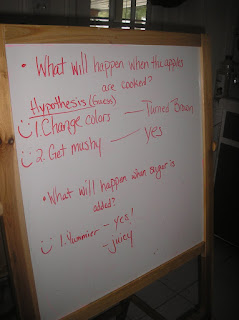 • What will happen when the apples
are cooked?
Hypothesis (Guess)
1. Change colors — Turned Brown
2. Get mushy — yes
• What will happen when sugar is
added?
1. Yummier – yes!
– juicy